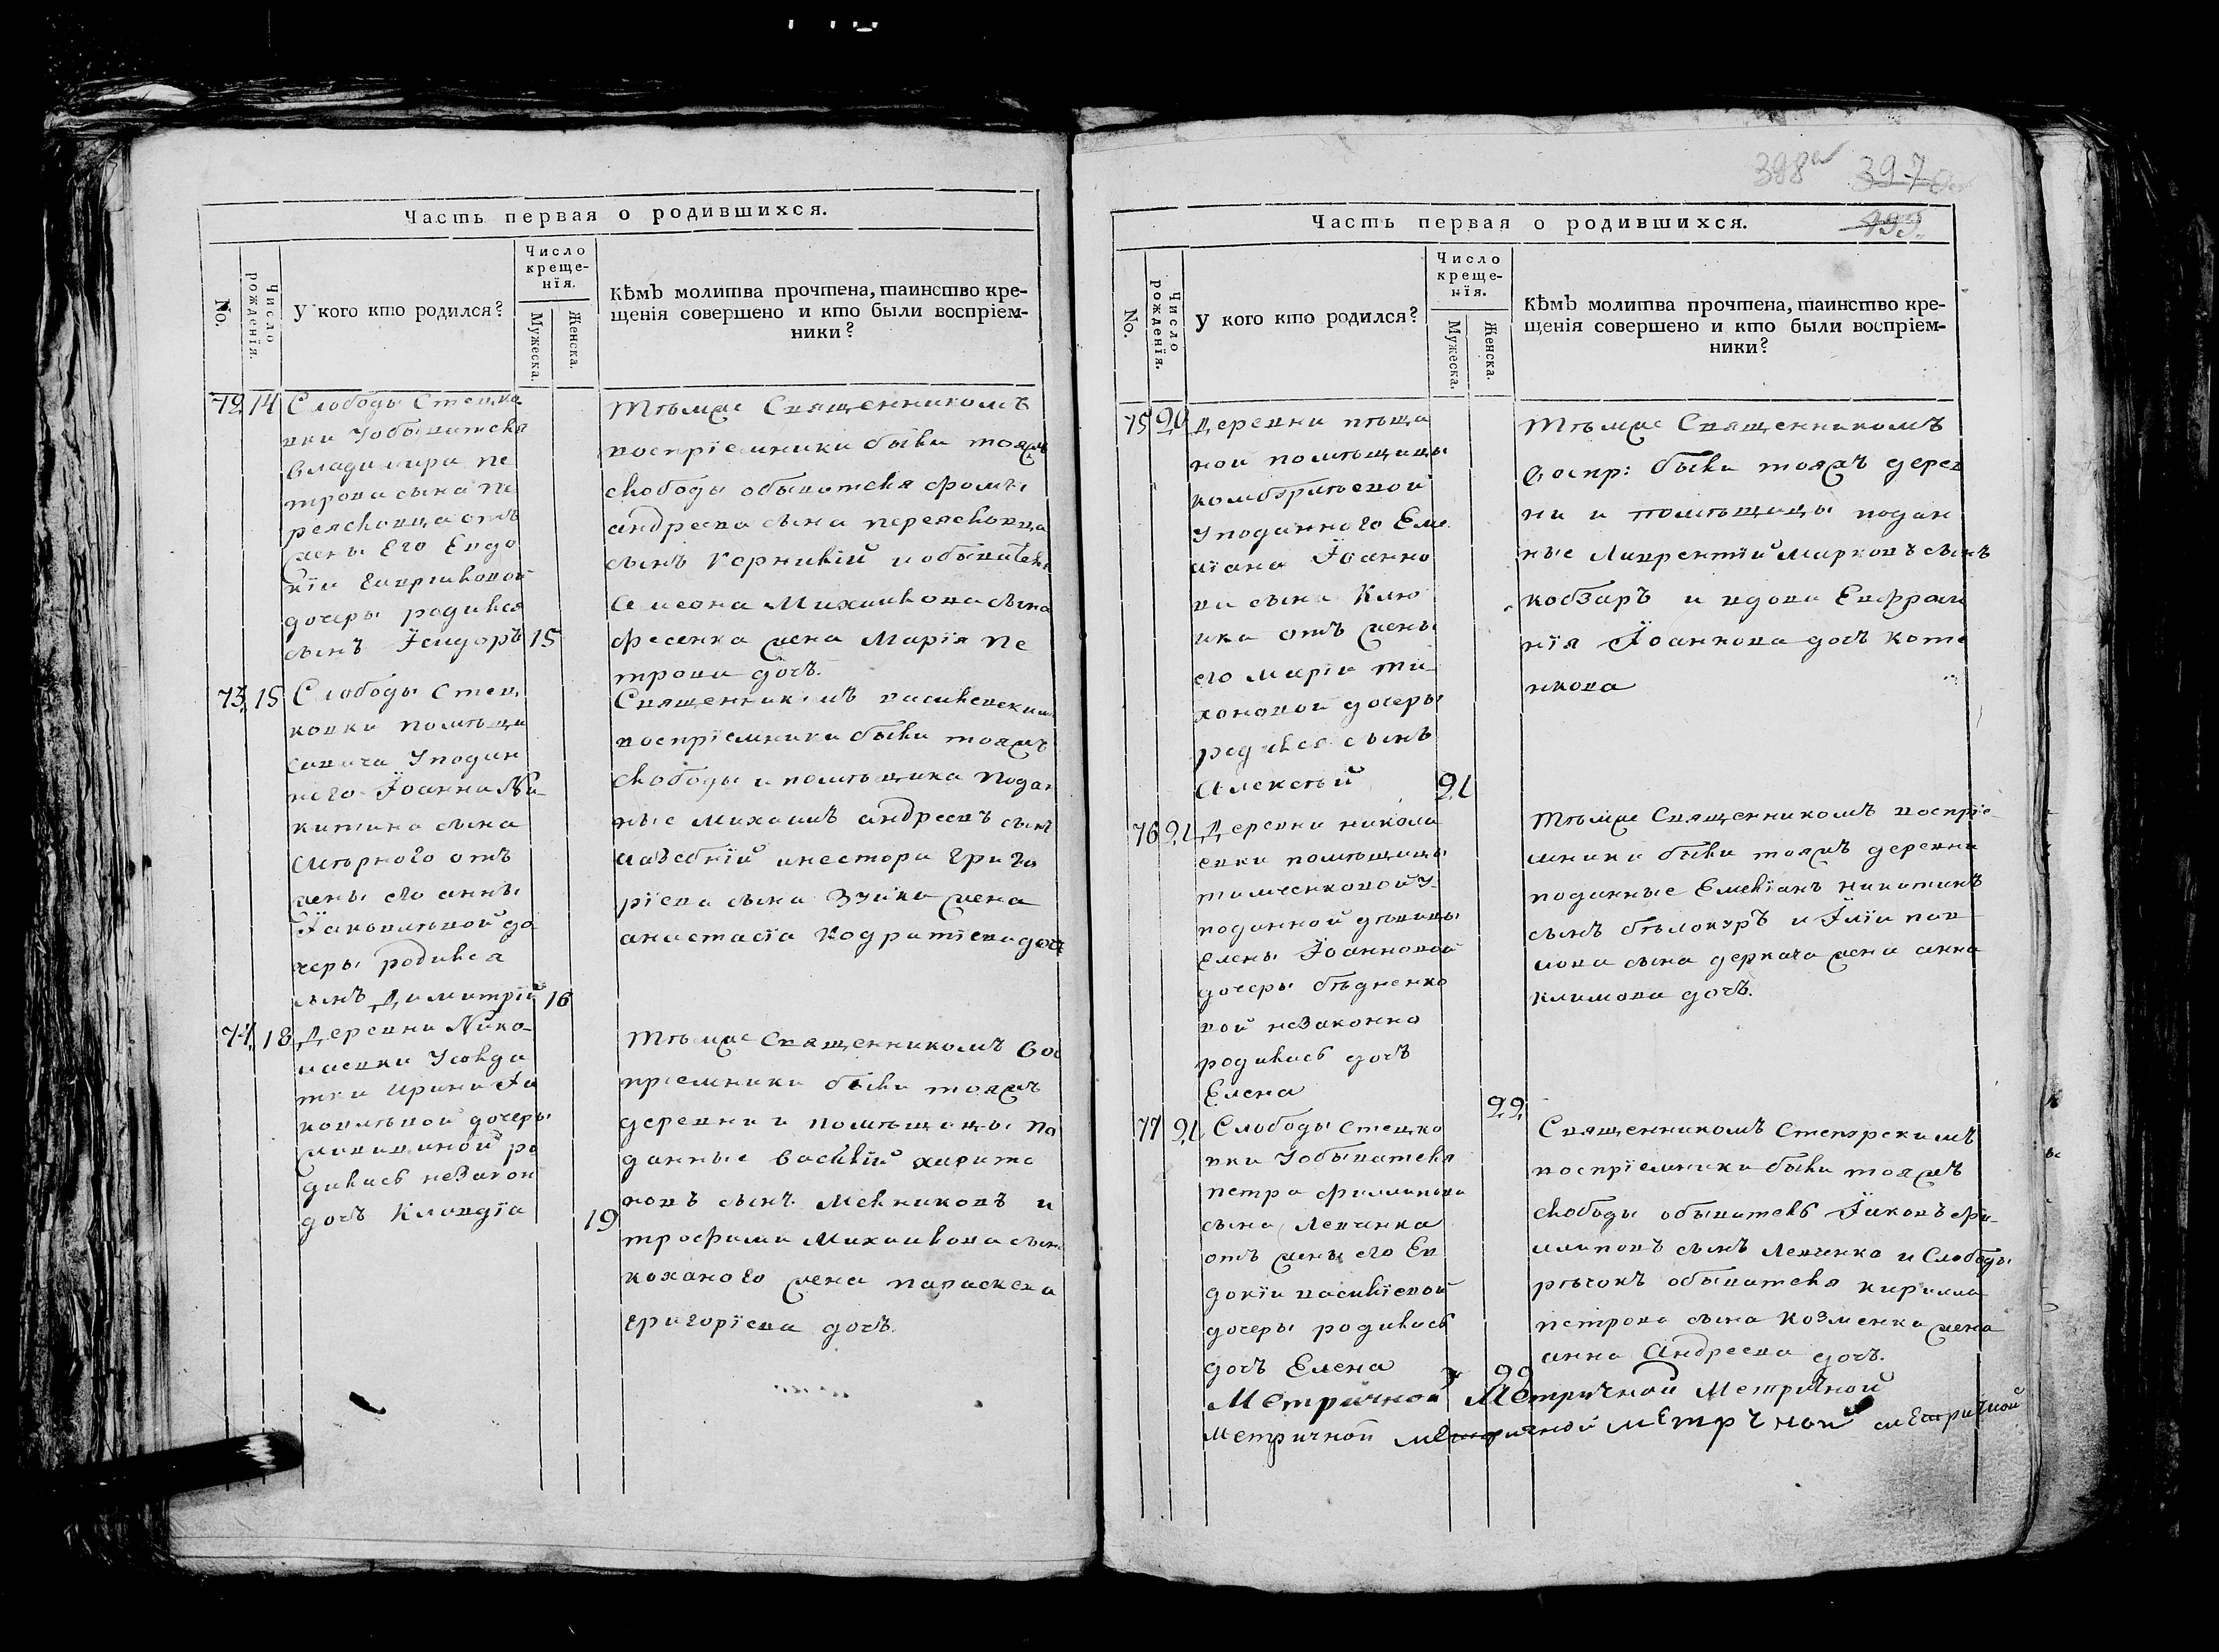 Часть первая о родившихся.
No.
Число рожденія.
У кого кто родился?
Число креще-
нія.
Мужеска.
Женска.
Кѣмъ молитва прочтена, таинство кре-
щенія совершено и кто были воспріем-
ники?
72 14 Слободы Стецко
вки У обывателя
Владимира пе
трова сына Пе
реясловца отъ
жены Его Евдо
кіи Гавриловой
дочеры родился
сынъ Їсидоръ 15
Тѣмже Священникомъ
воспріемники были тояжъ
слободы обывателя фомы
андреева сына переясловца
сынъ Корнилій и обывателя
Семеона Михаилова сына
фесенка жена Марія Пе
трова дочъ.
73. 15 Слободы Стец
ковки помѣщи
Савича У подан
наго Їоанна Ни
китина сына
Смѣрного отъ
жены его анны
Їаковлѣвой до
черы родился
сынъ Димитрій 16
Священникомъ василевскимъ
воспріемники были тояжъ
слободы и помѣщика подан
ные Михаилъ андреевъ сынъ
и нестора Григо
ріева сына Зуйка жена
анастасіа Кодратіева дочъ
74. 18 Деревни Нико
лаевки У солда
тки Ирины Їа
ковлѣвой дочеры
ро
дилась незакон
дочъ Клавдіа 19
Тѣмже Священникомъ Вос
пріемники были тояжъ
деревни и помѣщицы по
данные Василій харито
новъ сынъ Мелниковъ и
трофима Михаилова сына
коханого жена параскева
григоріева дочъ.
398 397
499.
Часть первая о родившихся.
No.
Число рожденія.
У кого кто родился?
Число креще-
нія.
Мужеска.
Женска.
Кѣмъ молитва прочтена, таинство кре-
щенія совершено и кто были воспріем-
ники?
75 20 Деревни
ной помѣщицы
У поданного Еми
ліана Їоанно
ва сына Клю
ика отъ жены
его маріи Ти
хоновой дочеры
родился сынъ
Алексѣй 21
Тѣмже Священникомъ
Воспр: были тояжъ дерев
ни и помѣщицы подан
ные Лаврентій Марковъ сынъ
кобзаръ и вдова Евфроси
нія Їоаннова дочъ коте
нкова
76 21 Деревни никола
евки помѣщицы
тимченковой У
поданной дѣвицы
Елены Їоанновой
дочеры бѣдненко
вой незаконно
родилась дочъ
Елена 22
Тѣмже Священникомъ воспріе
мники были тояжъ деревни
поданные Емеліанъ никитинъ
сынъ бѣлокуръ и Їліи пав
лова сына деркача жена анна
климова дочъ.
77 21 Слободы Стецко
вки У обывателя
петра филипова
сына Левченка
отъ жены его Ев
докіи василіевой
дочеры родилась
дочъ Елена 22
Священникомъ
воспріемники были тояжъ
слободы обыватель Їаковъ фи
липовъ сынъ Левченко и Слободы
рѣчокъ обывателя кирилла
петрова сына козменка жена
анна Андреева дочъ.
Метричной Метричной Метричной
Метричной метричной метрчной метричной